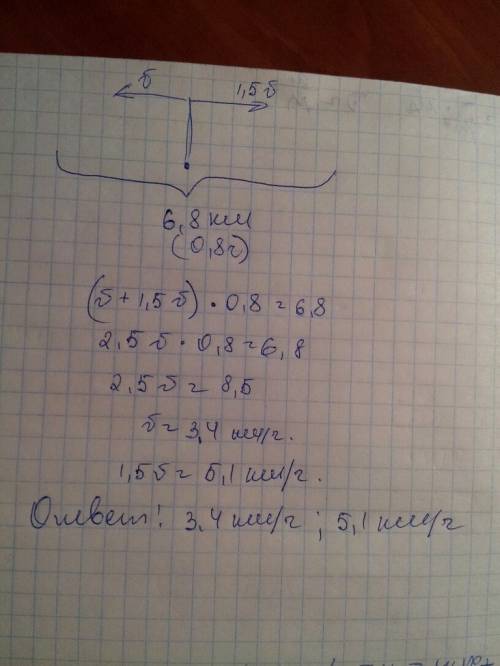 v 1,5v
6,8 км
(0,8ч)
(v + 1,5v) · 0,8 = 6,8
2,5v · 0,8 = 6,8
2,5v = 8,5
v = 3,4 км/ч.
1,5v = 5,1 км/ч.
Ответ: 3,4 км/ч ; 5,1 км/ч